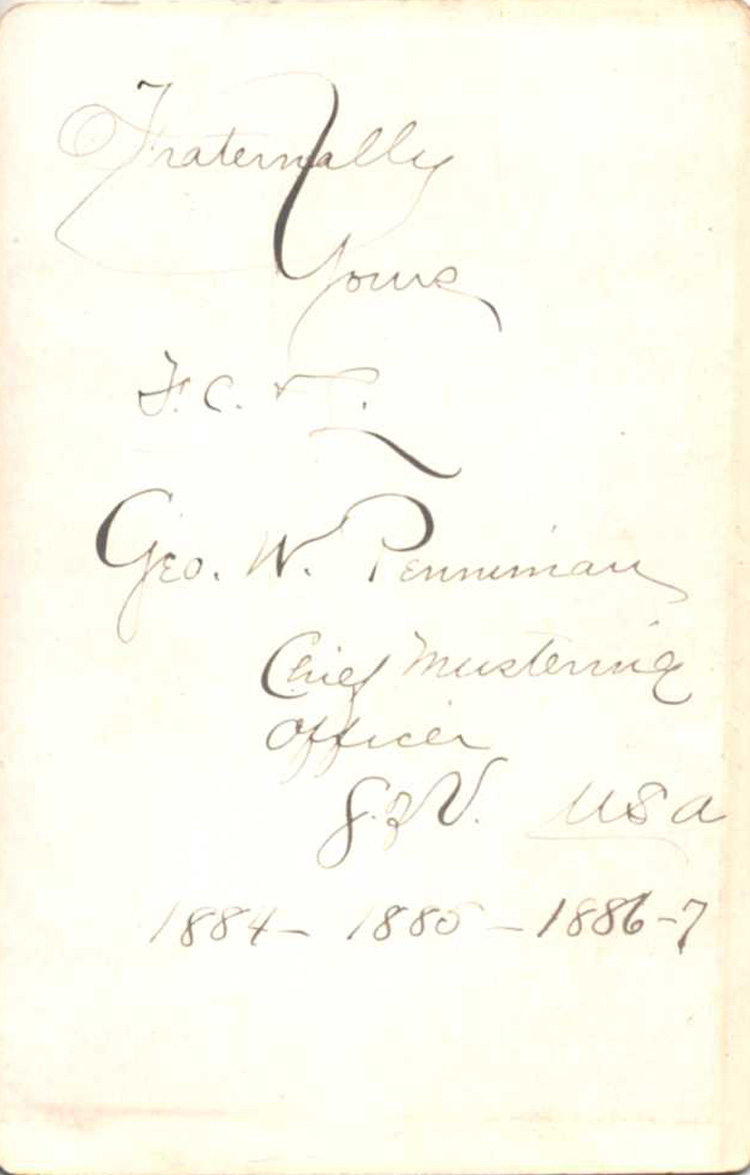 Fraternally
Yours
F. C. & L.
Geo. W. Penniman
Chief Mustering
Officer
S. of V. USA
1884 - 1885 - 1886-7